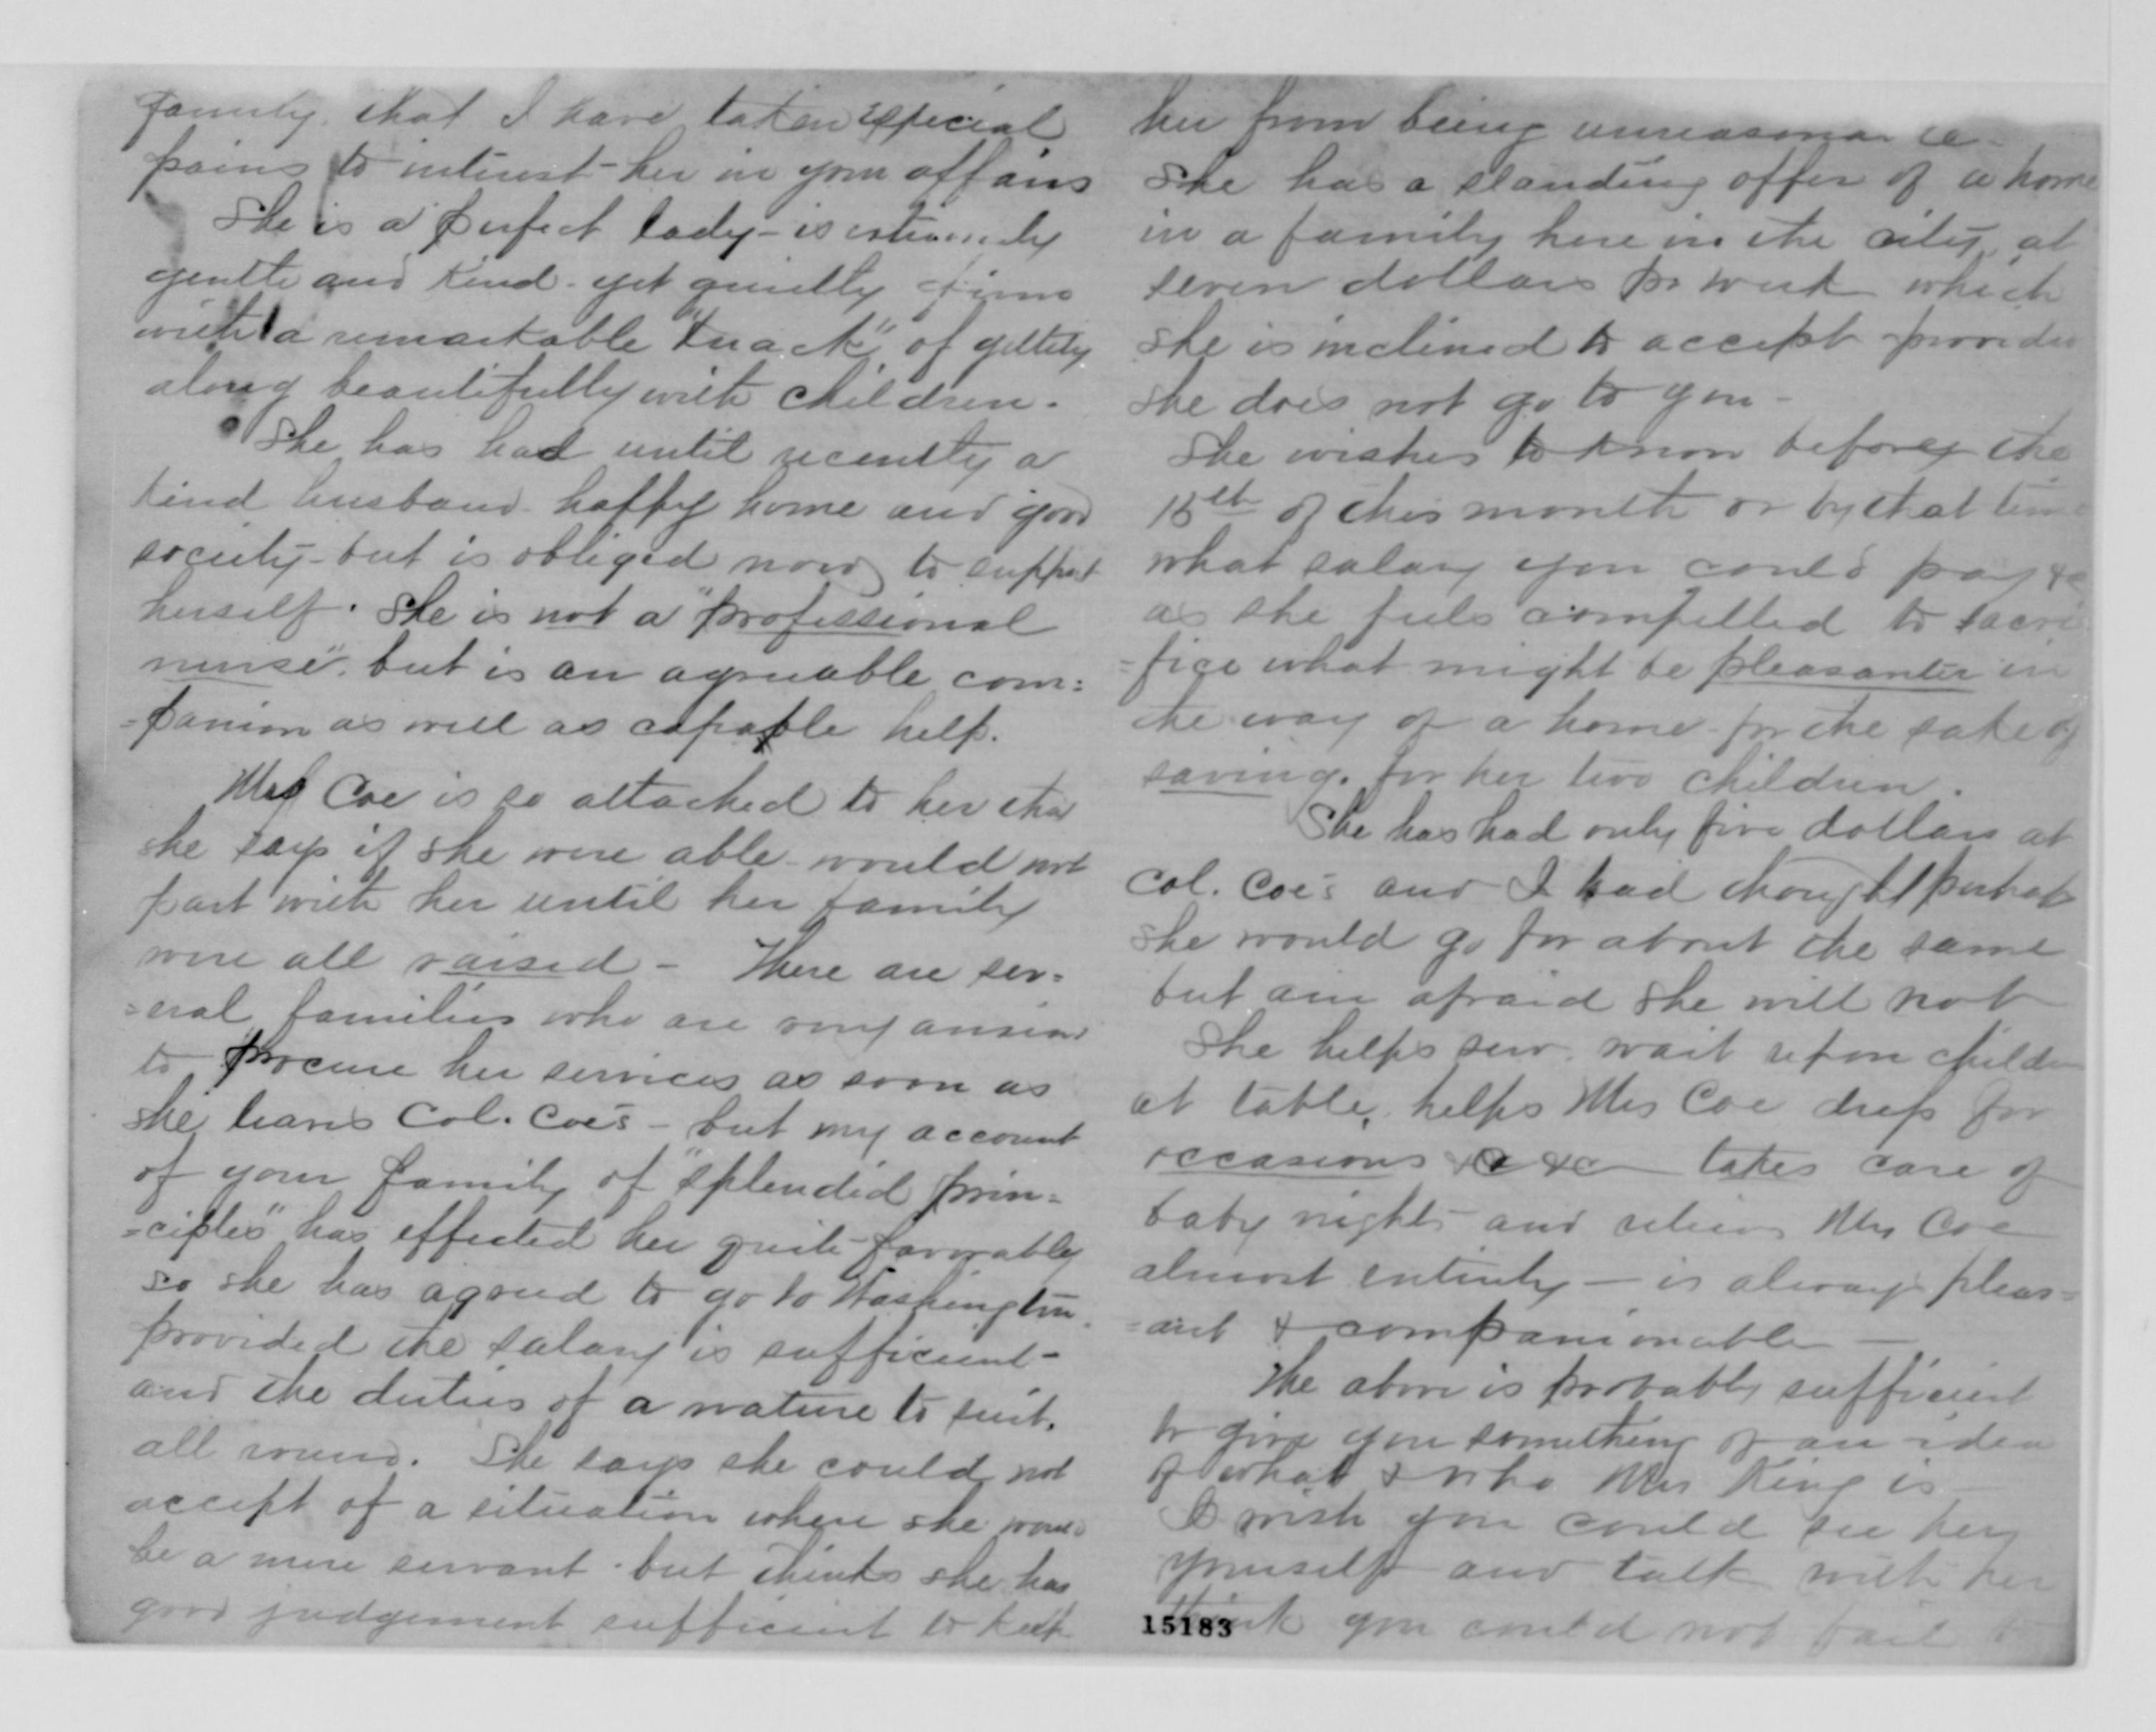 family, that I have taken especial
pains to interest her in your affairs
She is a perfect lady - is extremely
gentle and kind - yet quietly firm
with a remarkable "knack" of getting
along beautifully with children.
She has had until recently a
kind husband - happy home and good
society - but is obliged now to support
herself. She is not a "professional
nurse", but is an agreeable com=
=panion as well as capable help.
Mrs Coe is so attached to her that
she says if she were able - would not
part with her until her family
were all raised - There are sev=
=eral families who are very anxious
to procure her services as soon as
she leaves Col. Coe's - but my account
of your family of "splendid prin=
=ciples" has effected her quite favorably
so she has agreed to go to Washington.
provided the salary is sufficient -
and the duties of a nature to suit.
all round. She says she could not
accept of a situation where she would
be a mere servant - but thinks she has
good judgement sufficient to keep
her from being unreasonable -
She has a standing offer of a home
in a family here in the city, at
seven dollars pr week which
she is inclined to accept provided
she does not go to you -
She wishes to know before the
15th of this month or by that time
what salary you could pay &c
as she feels compelled to sacri
=fice what might be pleasanter in
the way of a home - for the sake of
saving. for her two children.
She has had only five dollars at
Col. Coe's and I had thought perhaps
she would go for about the same
but am afraid she will not
She helps sew. wait upon children
at table, helps Mrs Coe dress for
occasions &c &c - takes care of
baby nights - and relieves Mrs Coe
almost entirely - is always pleas=
=ant & companionable -
The above is probably sufficient
to give you something of an idea
of what & who Mrs King is -
I wish you could see her
yourself and talk with her
think you could not fail to
15183